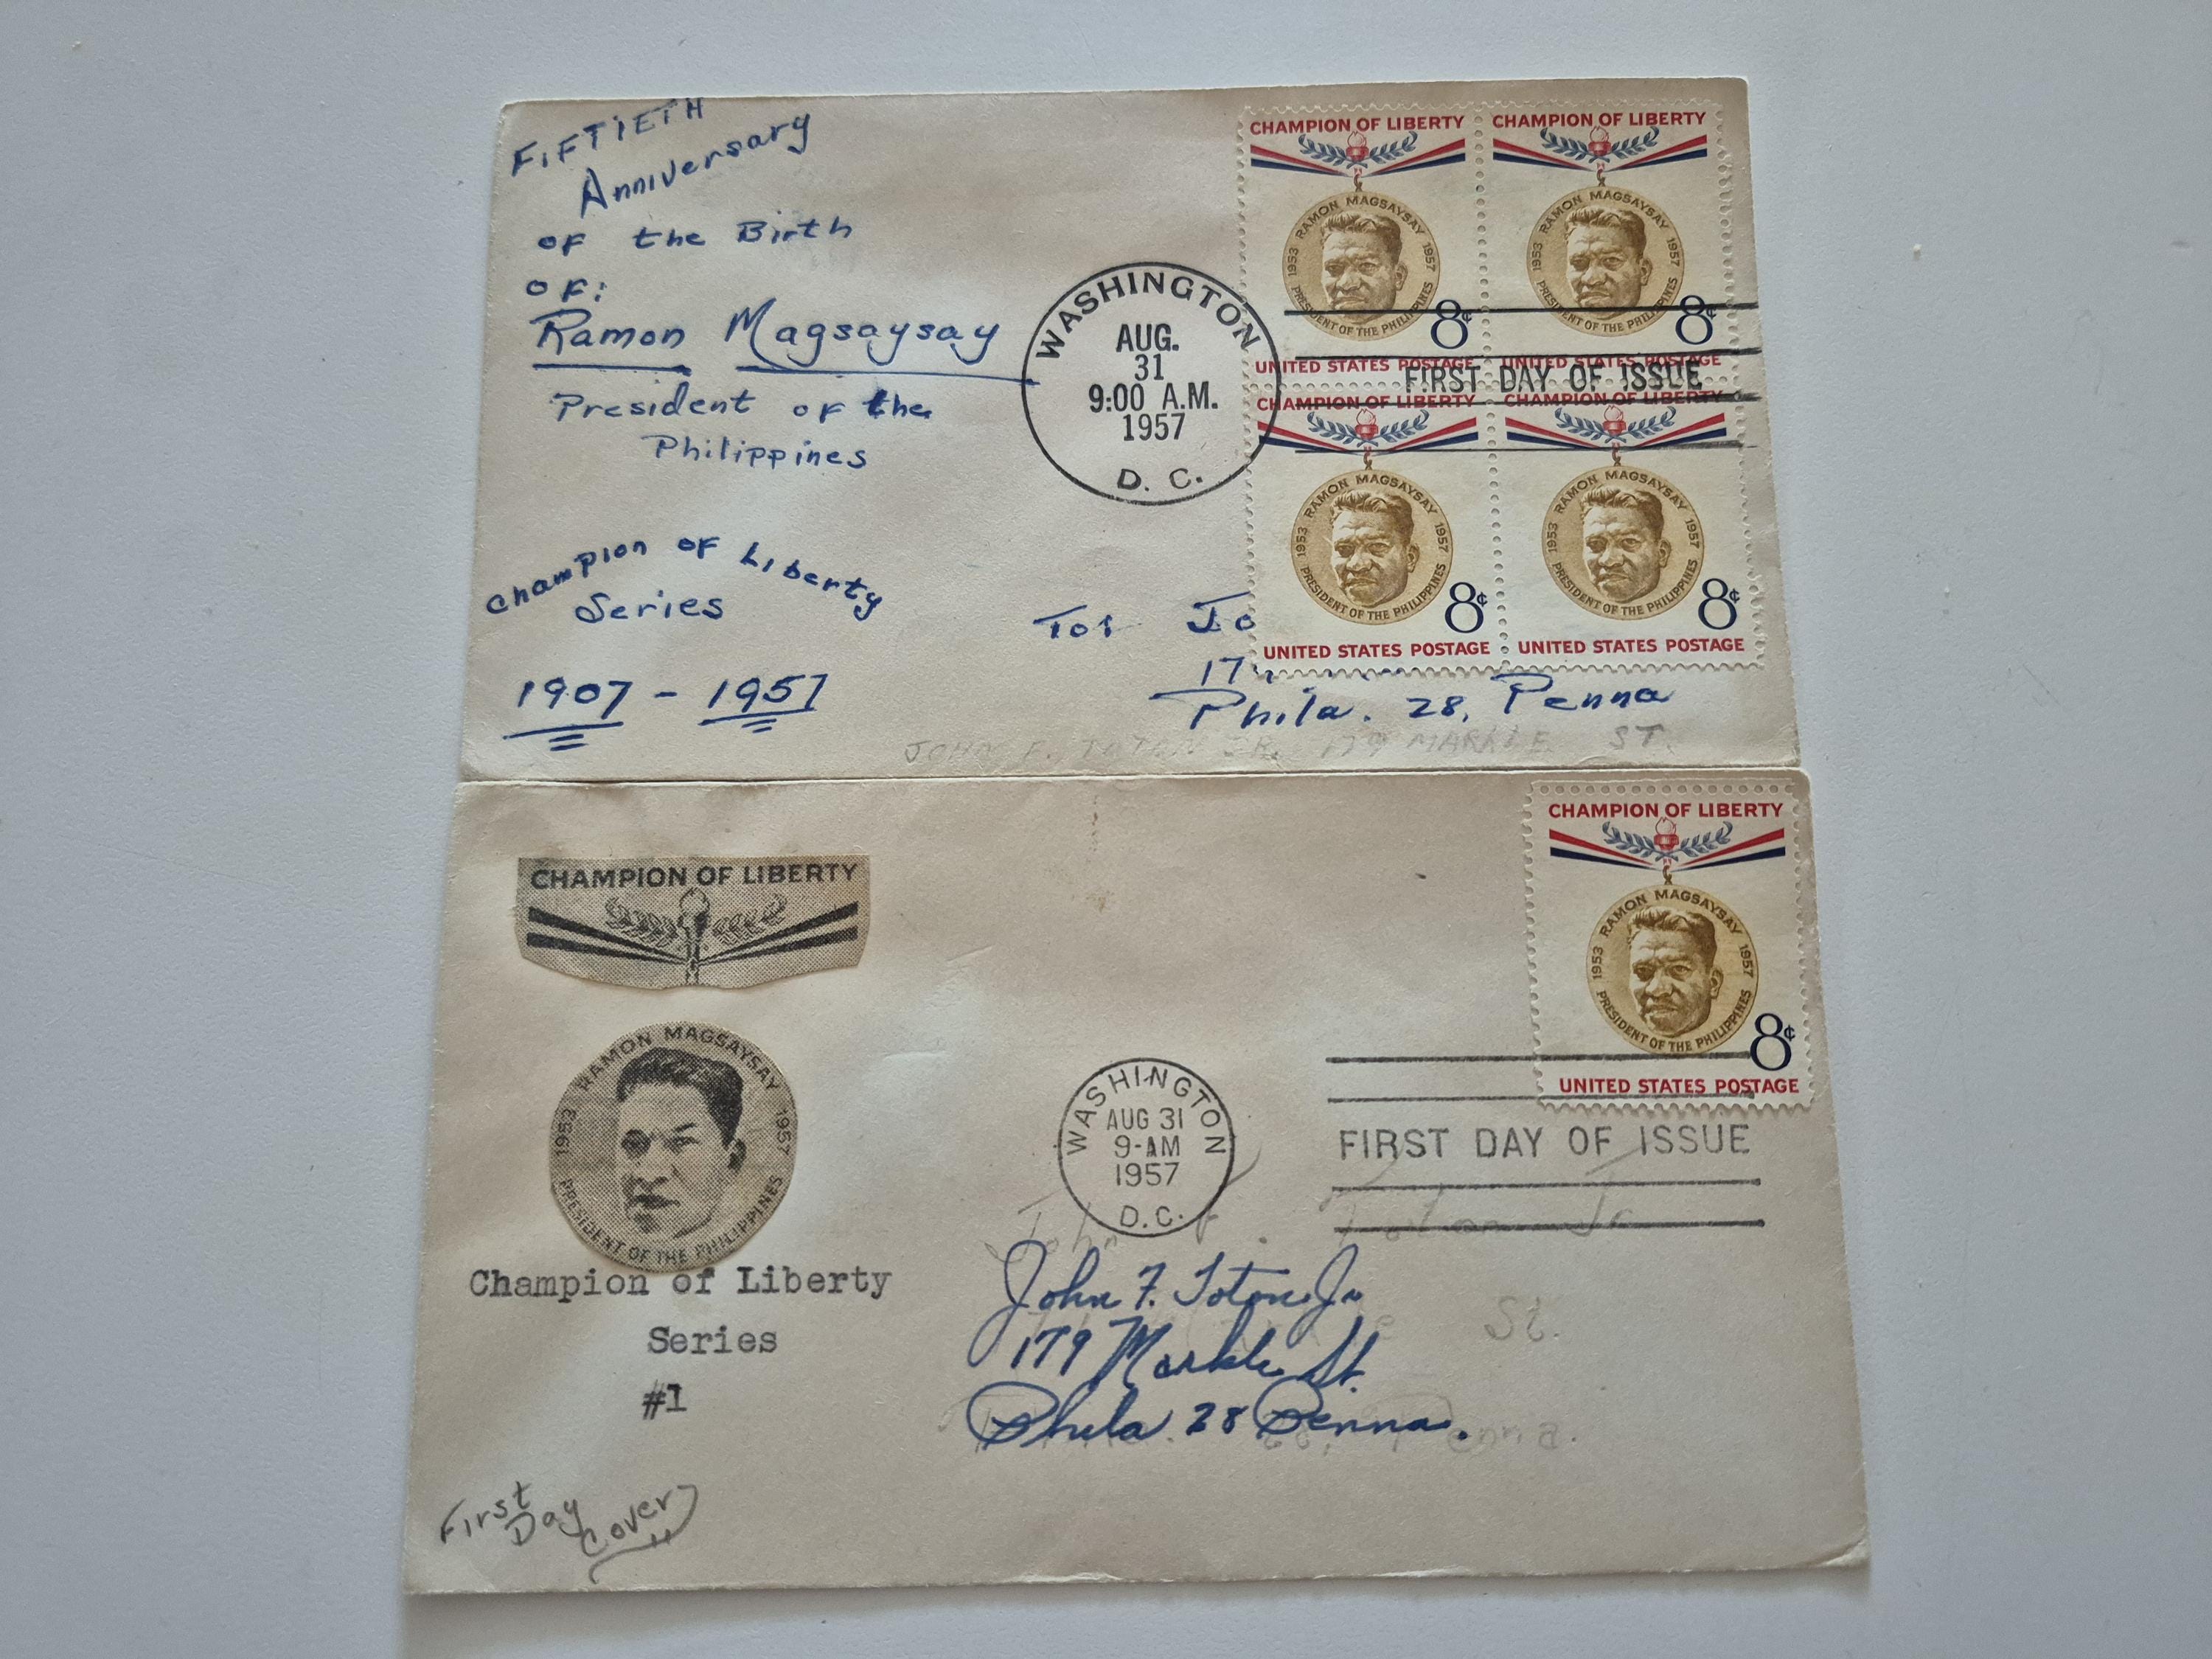 FIFTIETH
Anniversary
of the Birth
OF:
Ramon Magsaysay
President of the
Philippines
Champion of Liberty
Series
1907 - 1957
WASHINGTON
AUG.
31
9:00 A.M.
1957
D. C.
CHAMPION OF LIBERTY
RAMON MAGSAYSAY
1953 1957
PRESIDENT OF THE PHILIPPINES
8¢
UNITED STATES POSTAGE
CHAMPION OF LIBERTY
RAMON MAGSAYSAY
1953 1957
PRESIDENT OF THE PHILIPPINES
8¢
UNITED STATES POSTAGE
FIRST DAY OF ISSUE
CHAMPION OF LIBERTY
RAMON MAGSAYSAY
1953 1957
PRESIDENT OF THE PHILIPPINES
8¢
UNITED STATES POSTAGE
CHAMPION OF LIBERTY
RAMON MAGSAYSAY
1953 1957
PRESIDENT OF THE PHILIPPINES
8¢
UNITED STATES POSTAGE
To: Jo
17
Phila. 28, Penna
JOHN F. TOTON JR. 179 MARKLE ST.
CHAMPION OF LIBERTY
RAMON MAGSAYSAY
1953 1957
PRESIDENT OF THE PHILIPPINES
Champion of Liberty
Series
#1
First
Day
Cover
CHAMPION OF LIBERTY
RAMON MAGSAYSAY
1953 1957
PRESIDENT OF THE PHILIPPINES
8¢
UNITED STATES POSTAGE
WASHINGTON
AUG 31
9-AM
1957
D.C.
FIRST DAY OF ISSUE
John F. Toton Jr
John F. Toton Jr
179 Markle St.
St.
Phila 28 Penna.
Penna.